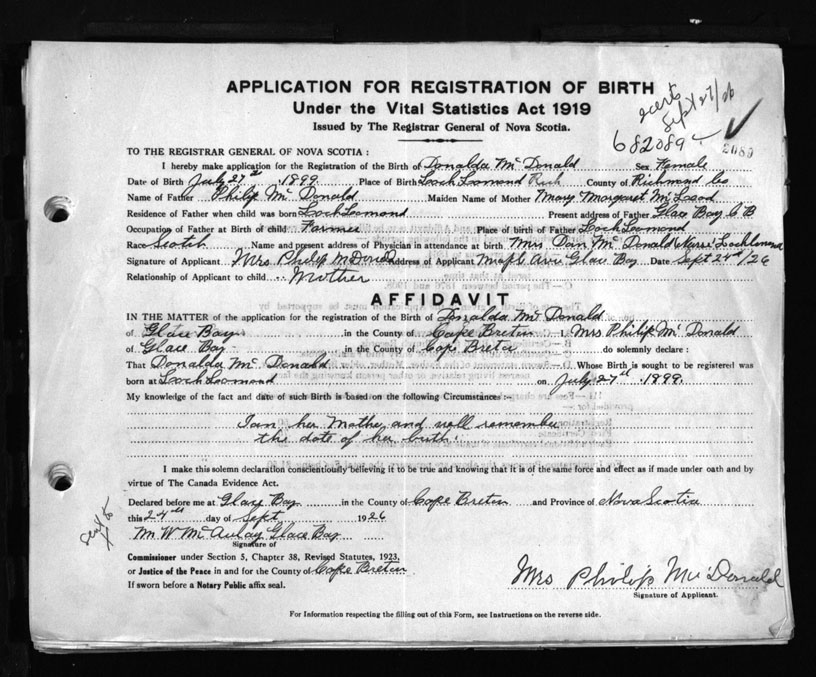 APPLICATION FOR REGISTRATION OF BIRTH
Under the Vital Statistics Act 1919
Issued by The Registrar General of Nova Scotia.
Sept 27/26
682089
2089
TO THE REGISTRAR GENERAL OF NOVA SCOTIA :
I hereby make application for the Registration of the Birth of Donalda Mc Donald Sex Female
Date of Birth July 27th 1899 Place of Birth Loch Loamond Rich County of Richmond Co
Name of Father Philip Mc Donald Maiden Name of Mother Mary Margaret Mc Leod
Residence of Father when child was born Loch Loamond Present address of Father Glace Bay C B
Occupation of Father at Birth of child Farmer Place of birth of Father Loch Loamond
Race Scotch Name and present address of Physician in attendance at birth Mrs Dan Mc Donald Nurse Lochlomond
Signature of Applicant Mrs Philip McDonald Address of Applicant Maple Ave Glace Bay Date Sept 24th/26
Relationship of Applicant to child Mother
AFFIDAVIT
IN THE MATTER of the application for registration of the Birth of Donalda Mc Donald
of Glace Bay in the County of Cape Breton I, Mrs Philip Mc Donald
of Glace Bay in the County of Cape Breton do solemnly declare :
That Donalda Mc Donald Whose Birth is sought to be registered was
born at Loch Loamond on July 27th 1899.
My knowledge of the fact and date of such Birth is based on the following Circumstances :-
I am her Mother and well remember
the date of her birth.
I make this solemn declaration conscientiously believing it to be true and knowing that it is of the same force and effect as if made under oath and by
virtue of The Canada Evidence Act.
Declared before me at Glace Bay in the County of Cape Breton and Province of Nova Scotia
this 24th day of Sept 1926
M W McAulay Glace Bay
Signature of
Commissioner under Section 5, Chapter 38, Revised Statutes, 1923,
or Justice of the Peace in and for the County of Cape Breton
If sworn before a Notary Public affix seal.
Mrs Philip McDonald
Signature of Applicant.
For Information respecting the filling out of this Form, see Instructions on the reverse side.